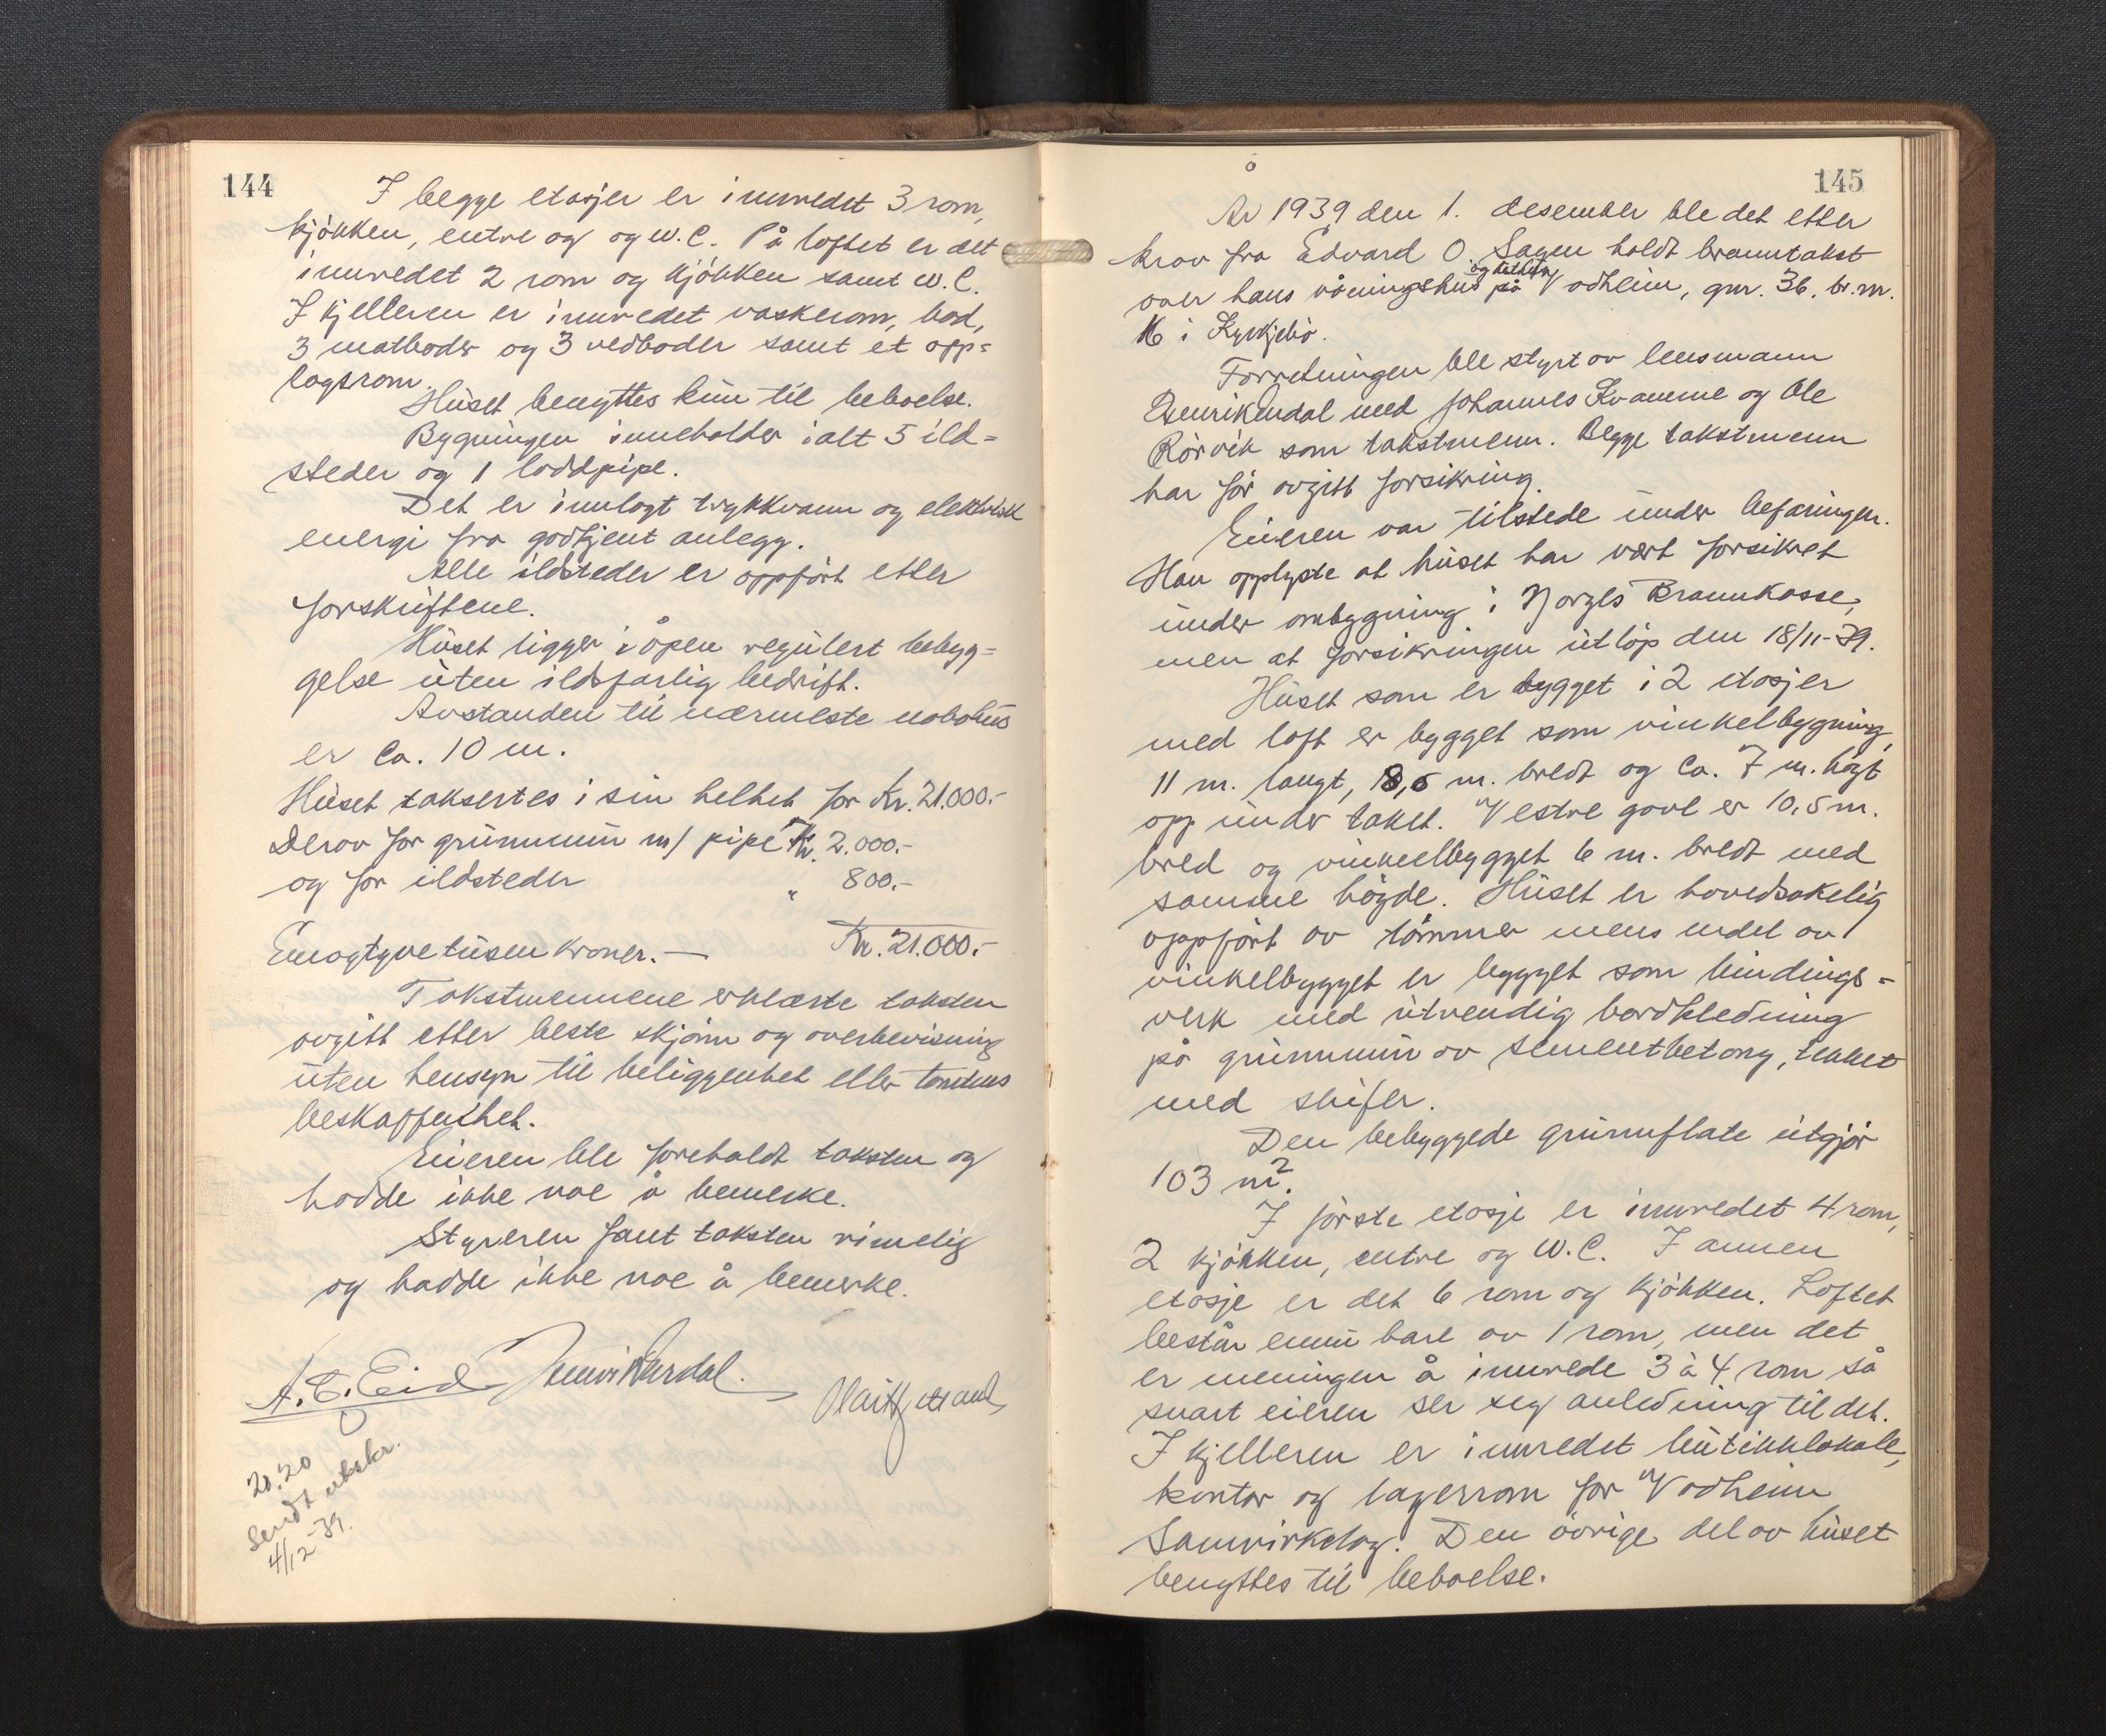 144
I begge etasjer er innredet 3 rom,
kjökken, entre og og W.C. På loftet er det
innredet 2 rom og kjökken samt W.C.
I kjelleren er innredet vaskerom, bod,
3 matboder og 3 vedboder samt et opp=
lagsrom.
Huset benyttes kun til beboelse.
Bygningen inneholder ialt 5 ild=
steder og 1 loddpipe.
Det er innlagt trykkvann og elektrisk
energi fra godkjent anlegg.
Alle ildsteder er oppfört etter
forskriftene.
Huset ligger i åpen regulert bebyg=
gelse uten ildsfarlig bedrift.
Avstanden til nærmeste nabohus
er ca. 10 m.
Huset taksertes i sin helhet for Kr. 21.000.-
Derav for grunnmur m/ pipe Kr. 2.000.-
og for ildsteder " 800.-
Enogtyvetusen kroner.— Kr. 21.000.-
Takstmennene erklærte taksten
avgitt etter beste skjönn og overbevisning
uten hensyn til beliggenhet eller tomtens
beskaffenhet.
Eieren ble foreholdt taksten og
hadde ikke noe å bemerke.
Styreren fant taksten rimelig
og hadde ikke noe å bemerke.
A. E. Eid
20.20
Sendt utskr.
4/12-39.
145
År 1939 den 1. desember ble det etter
krav fra Edvard O. Sagen holdt branntakst
over hans våningshus på Vadheim, gnr. 36, br.nr.
16 i Kyrkjebö.
Forretningen ble styrt av lensmann
Henrik Indal med Johannes Kvamme og Ole
Rörvik som takstmenn. Begge takstmenn
har för avgitt forsikring.
Eieren var tilstede under befaringen.
Han opplyste at huset har vært forsikret
under ombygning i Norges Brannkasse,
men at forsikringen utlöp den 18/11-39.
Huset som er bygget i 2 etasjer
med loft er bygget som vinkelbygning,
11 m. langt, 8,5 m. bredt og ca. 7 m. högt
opp under taket. Vestre gavl er 10,5 m.
bred og vinkelbygget 6 m. bredt med
samme högde. Huset er hovedsakelig
oppfört av tömmer mens endel av
vinkelbygget er bygget som bindings=
verk med utvendig bordkledning
på grunnmur av sementbetong, tekket
med skifer.
Den bebyggede grunnflate utgjör
103 m².
I förste etasje er innredet 4 rom,
2 kjökken, entre og W.C. I annen
etasje er det 6 rom og kjökken. Loftet
består ennu bare av 1 rom, men det
er meningen å innrede 3 à 4 rom så
snart eieren ser seg anledning til det.
I kjelleren er innredet butikklokale,
kontor og lagerrom for Vadheim
Samvirkelag. Den övrige del av huset
benyttes til beboelse.